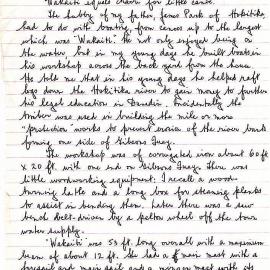 "Wakaiti" equals
The hobby of my father, James Park of Hokitika,
had to do with boating from canoes up to the largest
which was "Wakaiti". He not only enjoyed being on
the water but in my young days he built boats in
his workshop across the back yard from the house.
He told me that in his young days he helped raft
logs down the Hokitika river to gain money to further
his legal education in Dunedin. Incidentally the
timber was used in building the mile or more
"protection" works to prevent erosion of the river bank
forming one side of Gibsons Quay.
The workshop was of corrugated iron about 60 ft
x 20 ft with one end on Gibsons Quay. There was
little woodworking equipment. I recall a wood-
turning lathe and a long box for steaming planks
to assist in bending them. Later there was a saw
bench belt-driven by a pelton wheel off the town
water supply.
"Wakaiti was 53 ft long overall with a maximum
beam of about 12 ft. She had a main mast with a
foresail and main sail and a mizzen mast with its